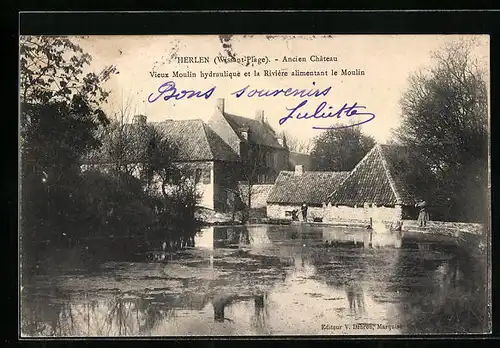 HERLEN (Wissant-Plage). - Ancien Château
Vieux Moulin hydraulique et la Rivière alimentant le Moulin
Bons souvenirs
Juliette
Editeur V. Marquise